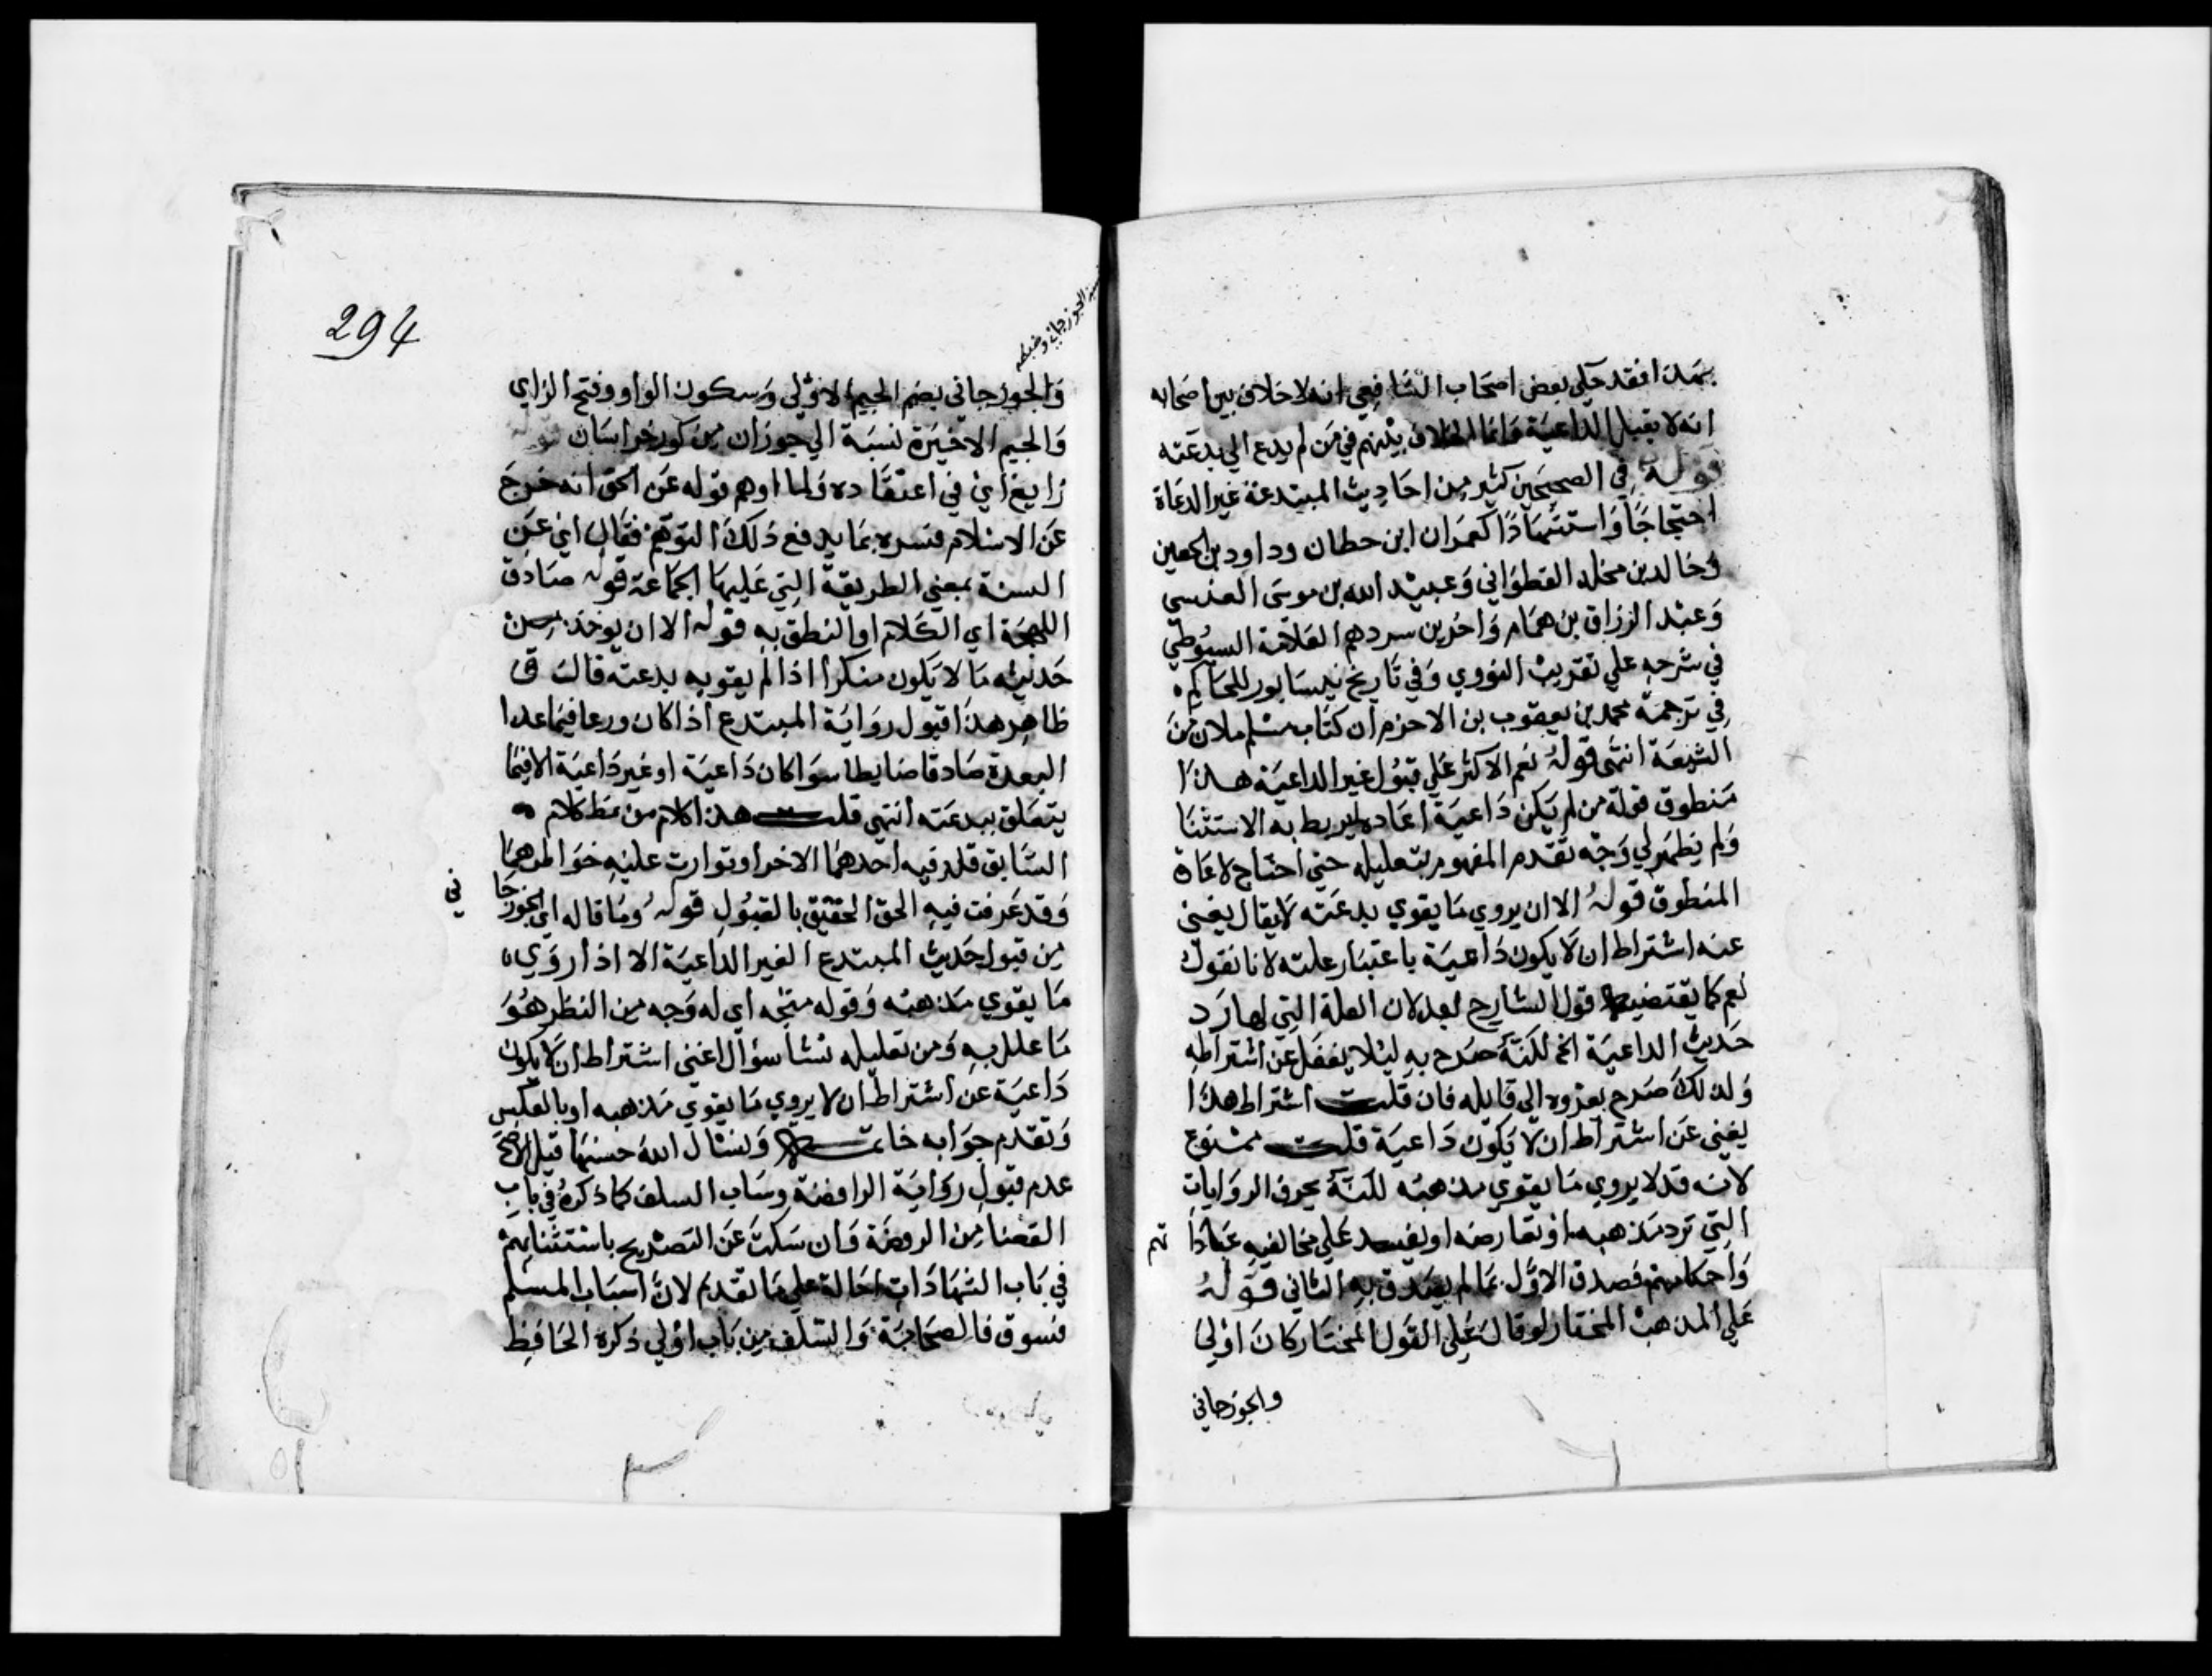 بهذا فقد حكي بعض اصحاب الشافعي انه لا خلاف بين اصحابه
انه لا يقبل الداعية وانما الخلاف بينهم في من لم يدع الي بدعته
قوله في الصحيحين كثير من احاديث المبتدعة غير الدعاة
احتجاجا واستشهادا كعمران ابن حطان وداود بن الحصين
وخالد بن مخلد القطواني وعبيد الله بن موسى العبسي
وعبد الرزاق بن همام واخرين سردهم العلامة السيوطي
في شرحه علي تقريب النووي وفي تاريخ نيسابور للحاكم
في ترجمة محمد بن يعقوب بن الاخرم ان كتاب مسلم ملان من
الشيعة انتهى قوله نعم الاكثر علي قبول غير الداعية هذا
منطوق قوله من لم يكن داعية اعاده ليربط به الاستثنا
ولم يظهر لي وجه تقدم المفهوم بتعليله حتي احتاج لاعادة
المنطوق قوله الا ان يروي ما يقوي بدعته لا يقال يغني
عنه اشتراط ان لا يكون داعية باعتبار علته لانا نقول
نعم كما يقتضيه قول الشارح بعد لان العلة التي لها رد
حديث الداعية الخ لكنه صرح به ليلا يغفل عن اشتراطه
ولذلك صرح بعزوه الى قايله فان قلت اشتراط هذا
يغني عن اشتراط ان لا يكون داعية قلت ممنوع
لانه قد لا يروي ما يقوي مذهبه لكنه يحرف الروايات
التي ترد مذهبه او تعارضه او يفسد علي مخالفيه عباداتهم
واحكامهم فصدق الاول بما لم يصدق به الثاني قوله
علي المذهب المختار لو قال علي القول المختار كان اولي
والجوزجاني
294
الجوزجاني وضبطه
والجوزجاني بضم الجيم الاولي وسكون الواو وفتح الزاي
والجيم الاخيرة نسبة الي جوزان من كور خراسان قوله
زايغ اي في اعتقاده ولما اوهم قوله عن الحق انه خرج
عن الاسلام فسره بما يدفع ذلك التوهم فقال اي عن
السنة بمعني الطريقة التي عليها الجماعة قوله صادق
اللهجة اي الكلام او النطق به قوله الا ان يوخذ من
حديثه ما لا يكون منكرا اذا لم يقو به بدعته قال ق
ظاهر هذا قبول رواية المبتدع اذا كان ورعا فيما عدا
البعدة صادقا ضابطا سوا كان داعية او غير داعية الا فيما
يتعلق ببدعته انتهى قلت هذا كلام من نمط كلام
السابق قلد فيه احدهما الاخر او توارت عليه خواطرهما
وقد عرفت فيه الحق الحقيق بالقبول قوله وما قاله اي الجوزجاني
من قبول حديث المبتدع الغير الداعية الا اذا روي
ما يقوي مذهبه وقوله متجه اي له وجه من النظر هو
ما علل به ومن تعليله نشا سؤال اغني اشتراط ان لا يكون
داعية عن اشتراط ان لا يروي ما يقوي مذهبه او بالعكس
وتقدم جوابه خاتمة ونسال الله حسنها قيل الاصح
عدم قبول رواية الرافضة وساب السلف كما ذكره في باب
القضا من الروضة وان سكت عن التصريح باستثنائهم
في باب الشهادات احالة علي ما تقدم لان اسباب المسلم
فسوق فالصحابة والسلف من باب اولي ذكره الحافظ